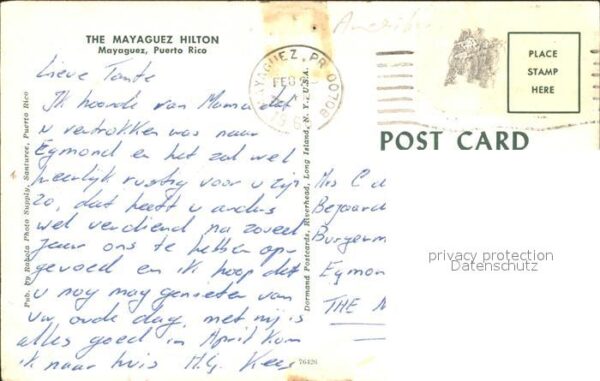 THE MAYAGUEZ HILTON
Mayaguez, Puerto Rico
Lieve Tante
Ik hoorde van Mama dat
u vertrokken was naar
Egmond en het zal wel
heerlijk rustig voor u zijn
zo, dat heeft u anders
wel verdiend na zoveel
jaar ons te hebben op-
gevoed en ik hoop dat
u nog mag genieten van
uw oude dag, met mij is
alles goed in April kom
ik naar huis M.G. Kees
Pub. by Rahola Photo Supply, Santurce, Puerto Rico
Dormand Postcards, Riverhead, Long Island, N. Y., U.S.A.
76426
MAYAGUEZ, PR 00708
FEB
PLACE
STAMP
HERE
POST CARD
Mrs C d
Bejaard
Burgerm
Egmon
THE N
privacy protection
Datenschutz